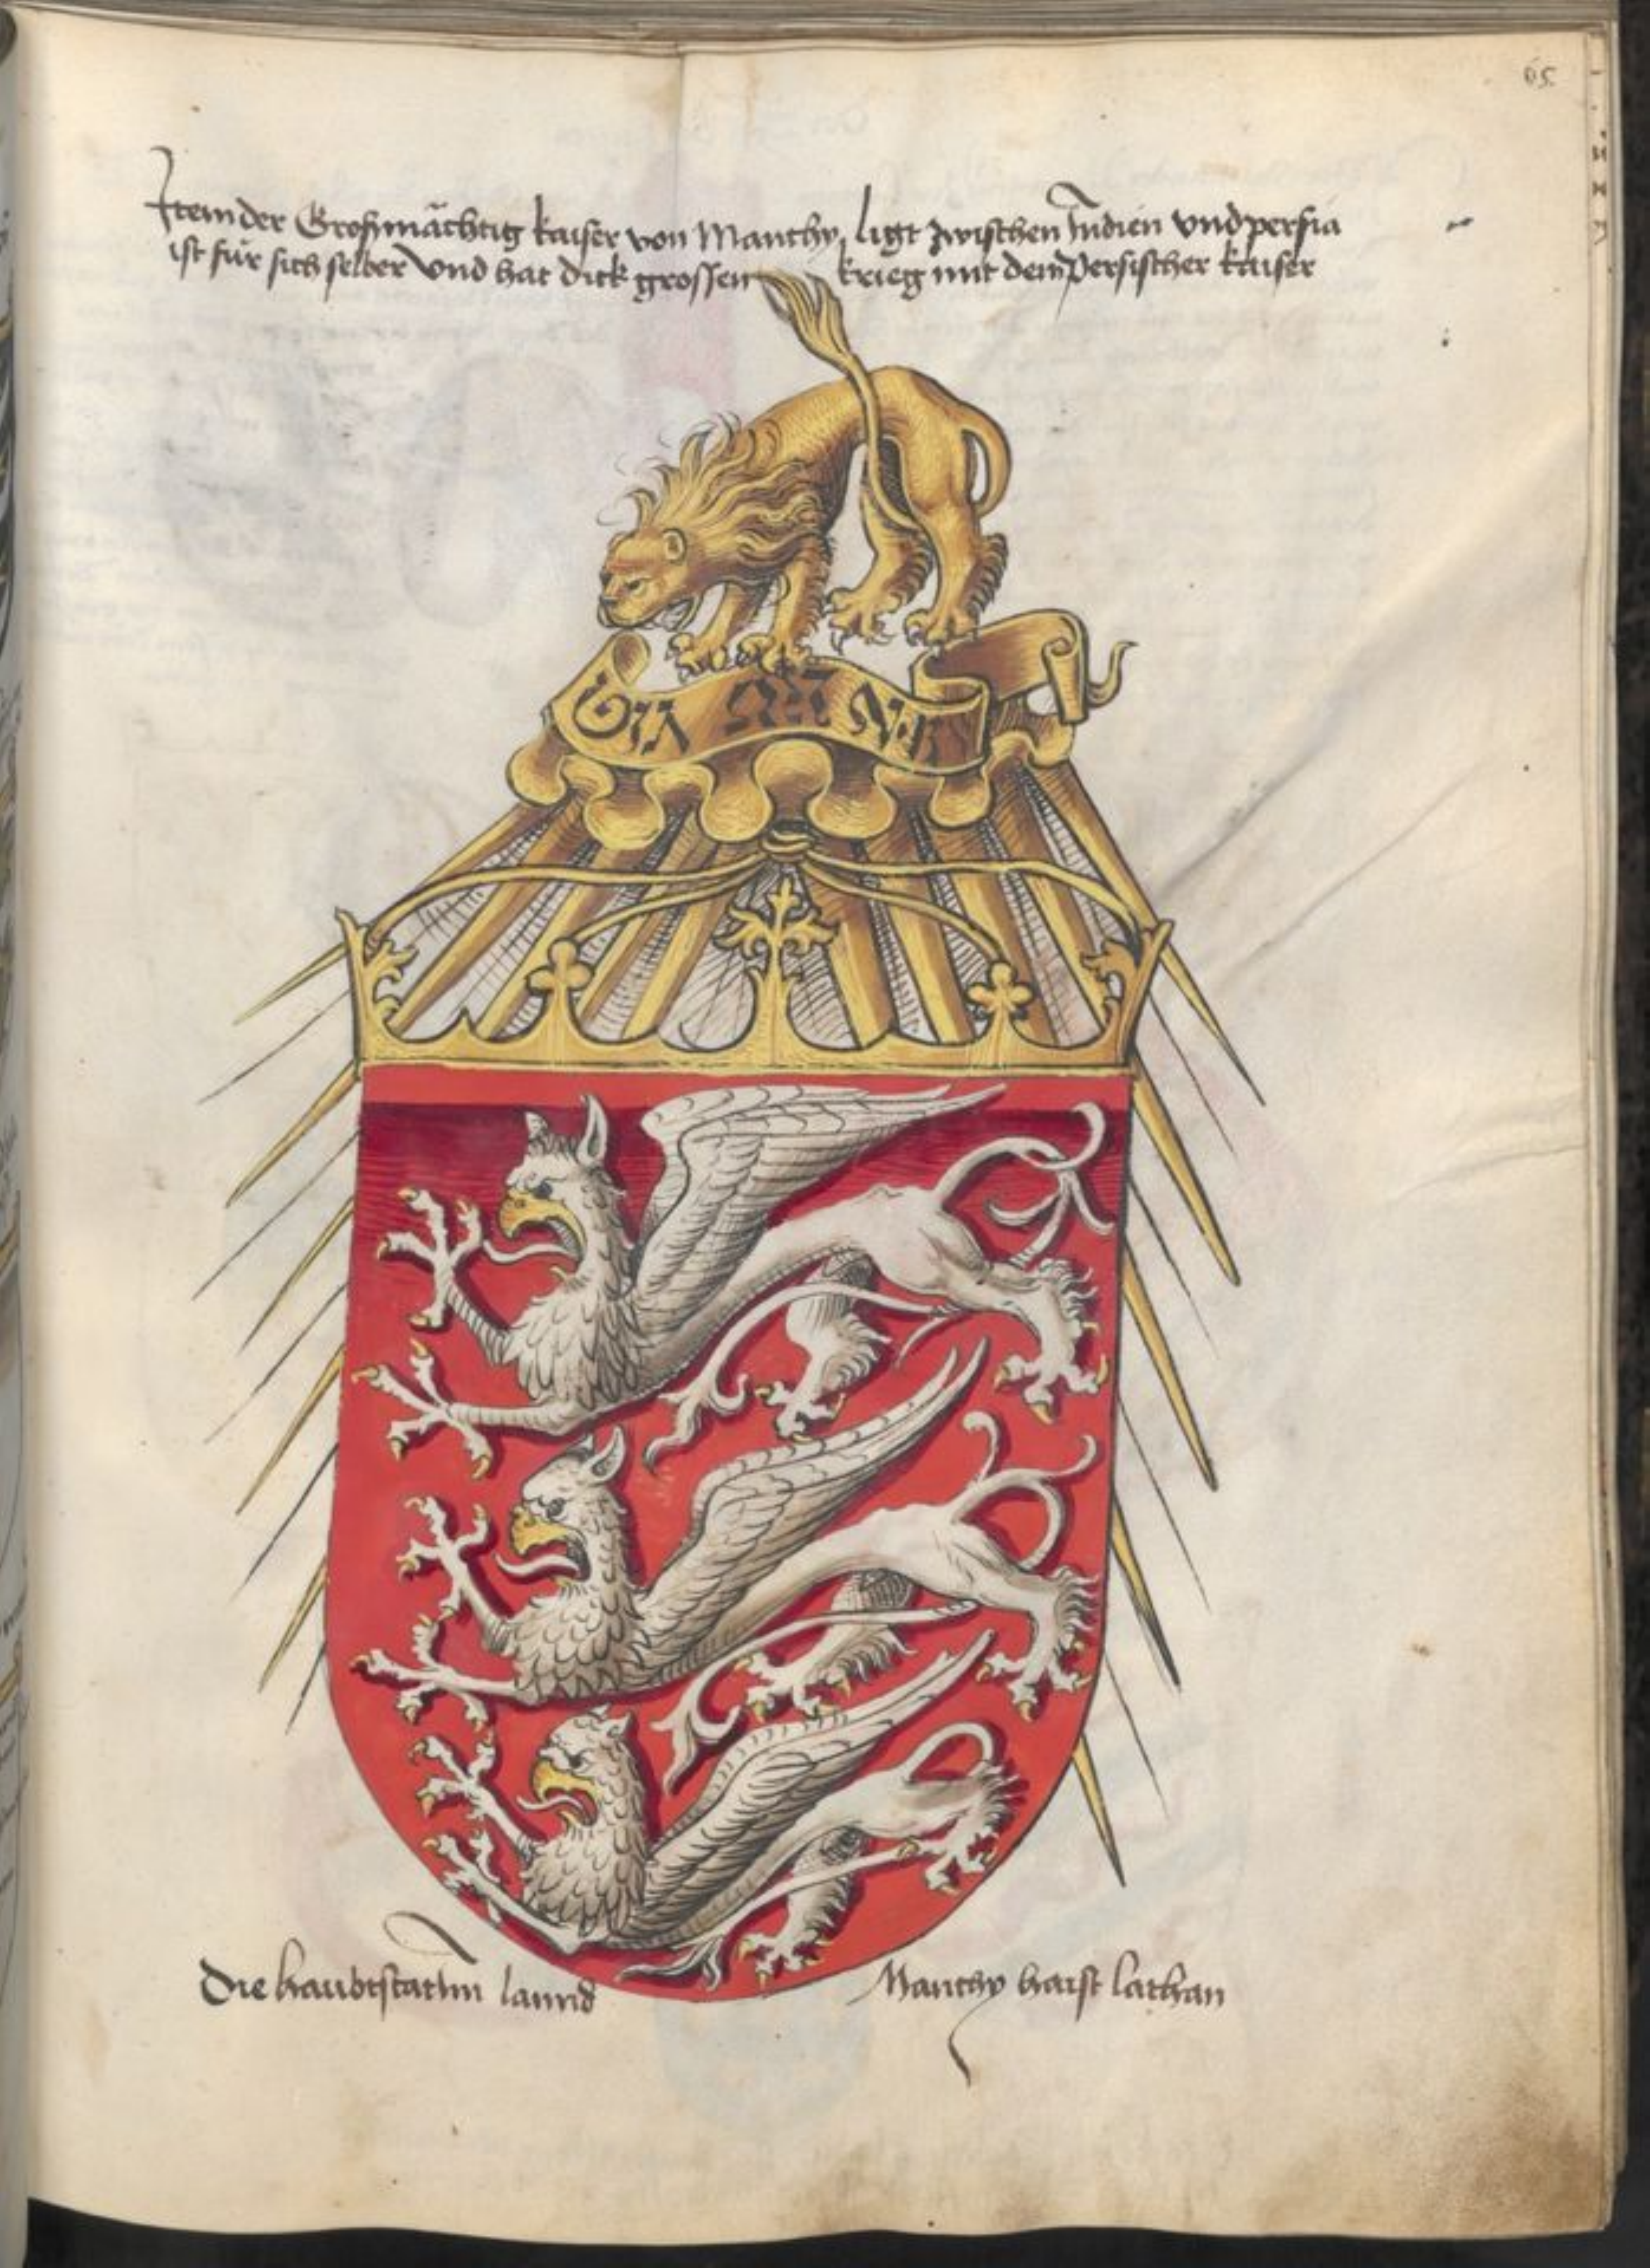 65.
Item der Groſmächtig kaiſer von Manthy, ligt zwiſchen Indien vnd perſia
iſt für ſich ſelber Vnd hat dick groſſen krieg mit dem Perſiſcher kaiſer
Die haubtſtat Im lannd Manthy haiſt lathan